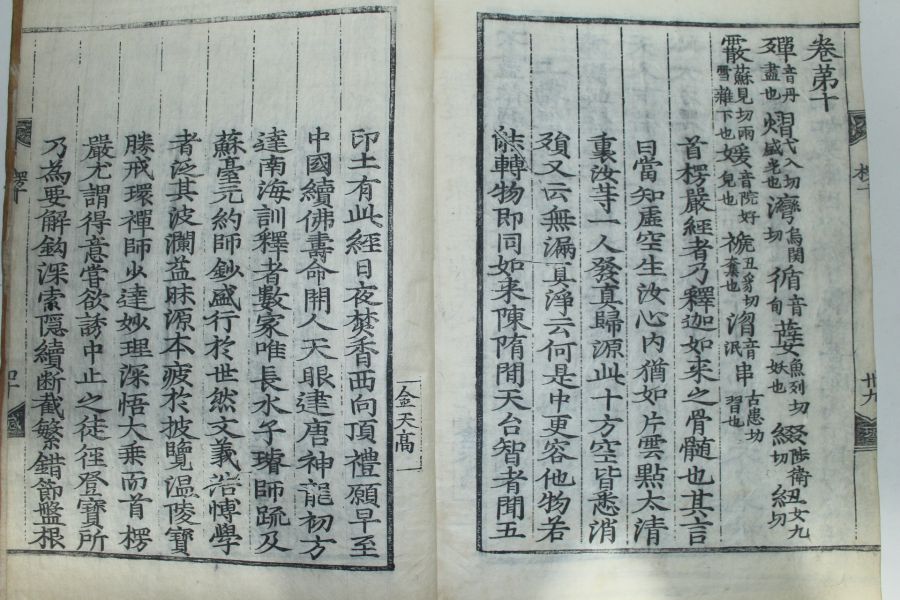 卷第十
殫音丹盡也 熠弋入切盛光也 灣烏関切 循音旬 蠥魚列切妖也 綴陟衛切 紐女九切
霰蘇見切雨雪雜下也 媛音院好皃也 褫丑豸切奪也 㴘音泯 串古患切習也
首楞嚴經者乃釋迦如来之骨髓也其言
日當知虛空生汝心内猶如片雲點太清
裏汝等一人發真歸源此十方空皆悉消
殞又云無漏真淨云何是中更容他物若
能轉物即同如来陳隋間天台智者聞五
卄九
金天髙
印土有此經日夜焚香西向頂禮願早至
中國續佛壽命開人天眼逮唐神龍初方
達南海訓釋者數家唯長水子璿師䟽及
蘇臺元約師鈔盛行於世然文義浩愽學
者泛其波瀾益昧源本疲於披覽温陵寶
勝戒環禪師少達妙理深悟大乗而首楞
嚴尤謂得意嘗欲誘中止之徒徑登寶所
乃為要解鈎深索隠續断截繁錯節盤根
楞十
四十